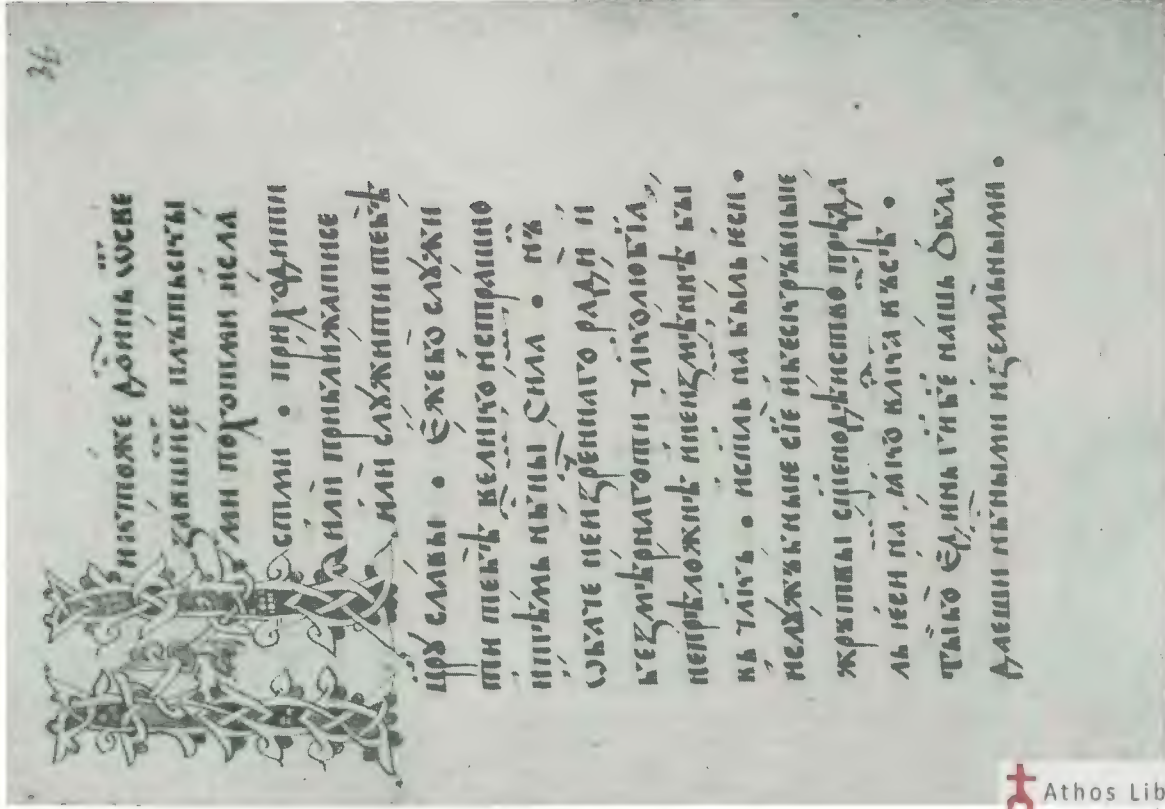 36
Никтоже дⷭ҇тоинь ѿ све
завшиⷯсе плътьскⷩ҇ыи
ми похотьми и сла
стми · приходити
или приближатисе
или слоужити тебѣ
црю славы · Еже бо слоужи
ти тебѣ велико и страшно
и тѣмь нбⷭ҇ныⷨ силаⷨ · нь
ѡбаче неизреⷱ҇ннаго ради и
безмѣрнаго ти чл҃колюбїа,
непрѣложнѣ и неизмѣннѣ бы
вь чл҃кь · и ст҃ль наⷨ быль еси ·
и слоужбьныѥ сїе и бескрьвныѥ
жрьтвы сщ҃еннодѣиство прѣда
ль ѥси наⷨ, ꙗко влⷣка вьсѣⷯ ·
Ты бо Єдинь г҃и б҃е нашь ѡбла
даеши нбⷭ҇ными и земльными ·
Athos Lib